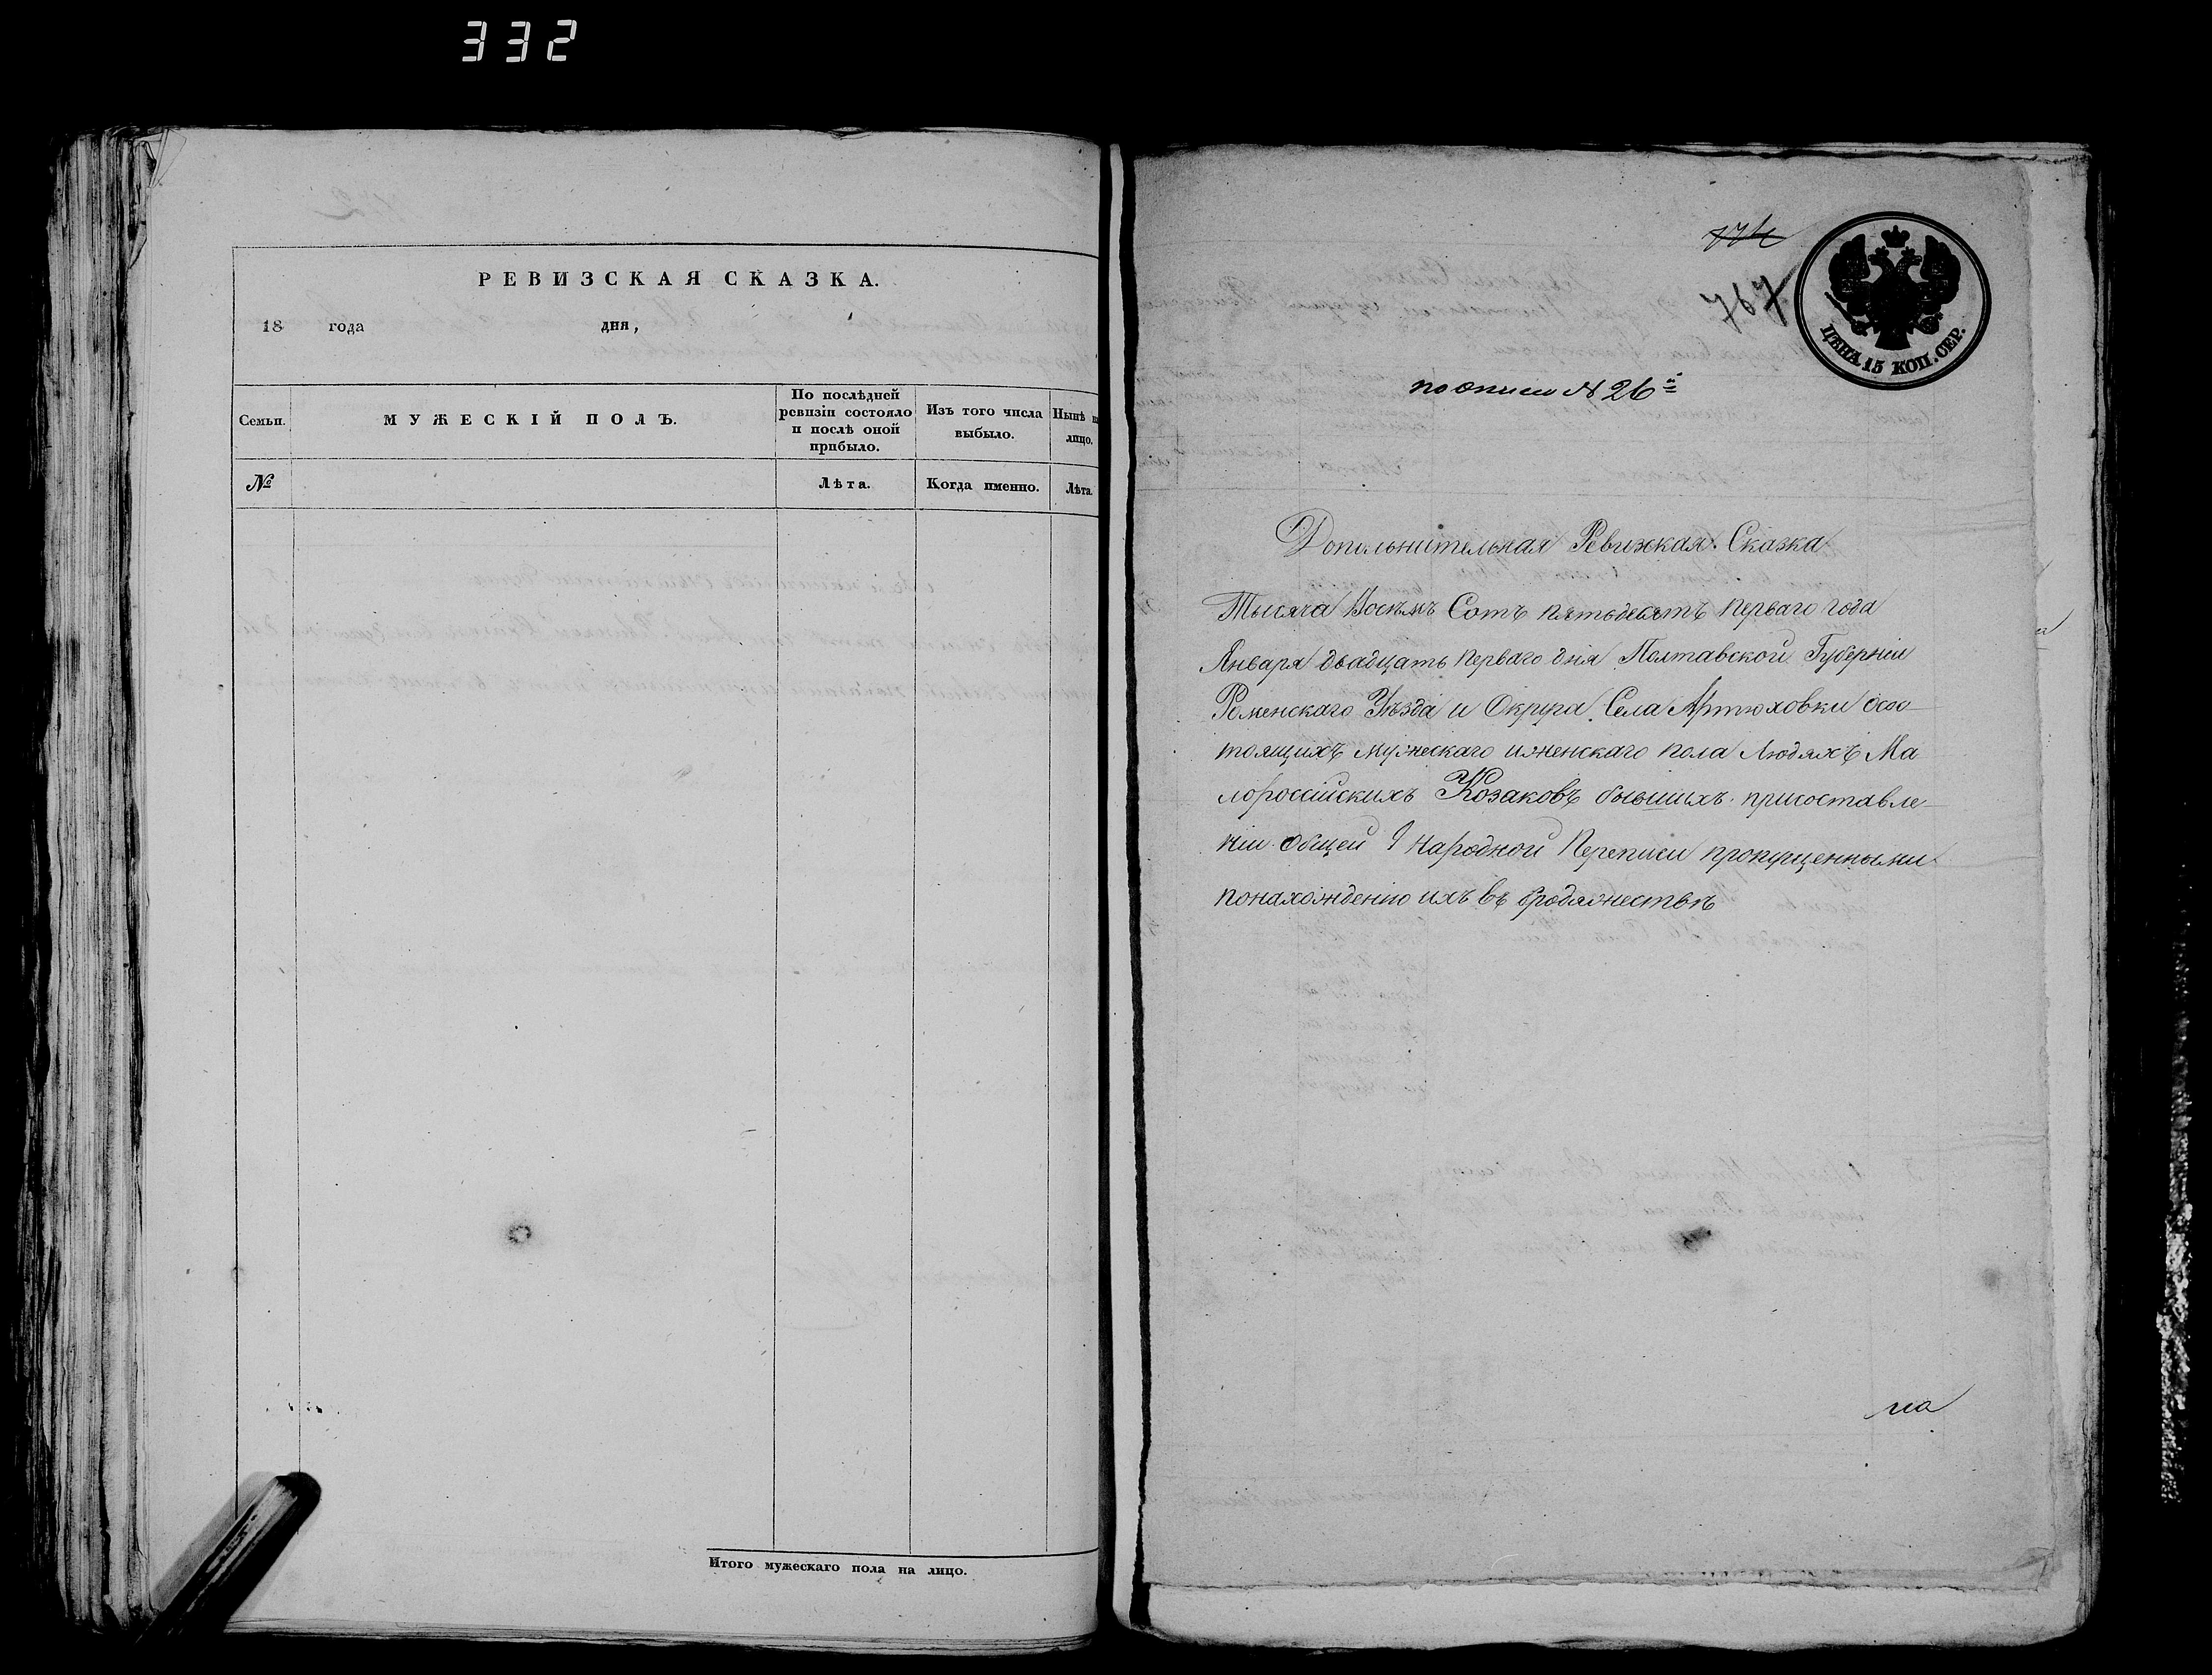 332
РЕВИЗСКАЯ СКАЗКА.
18 года дня,
Семьи.
МУЖЕСКІЙ ПОЛЪ.
По послѣдней
ревизіи состояло
и послѣ оной
прибыло.
Изъ того числа
выбыло.
Нынѣ
лицо.
№
Лѣта.
Когда именно.
Лѣта.
Итого мужескаго пола на лицо.
774
767
ЦѢНА 15 КОП. СЕР.
по описи № 26й
Дополнительная Ревизская Сказка
Тысяча Восемь Сотъ пятьдесятъ перваго года
Января двадцать перваго дня Полтавской Губерніи
Роменскаго Уѣзда и Округа Села Артюховки осо-
тоящихъ мужескаго иженскаго пола Людяхъ Ма
лороссійскихъ Козаковъ бывшихъ присоставле-
ніи Общей 9 Народной Переписи пропущенными
понахожденію ихъ въ бродяжествѣ
на